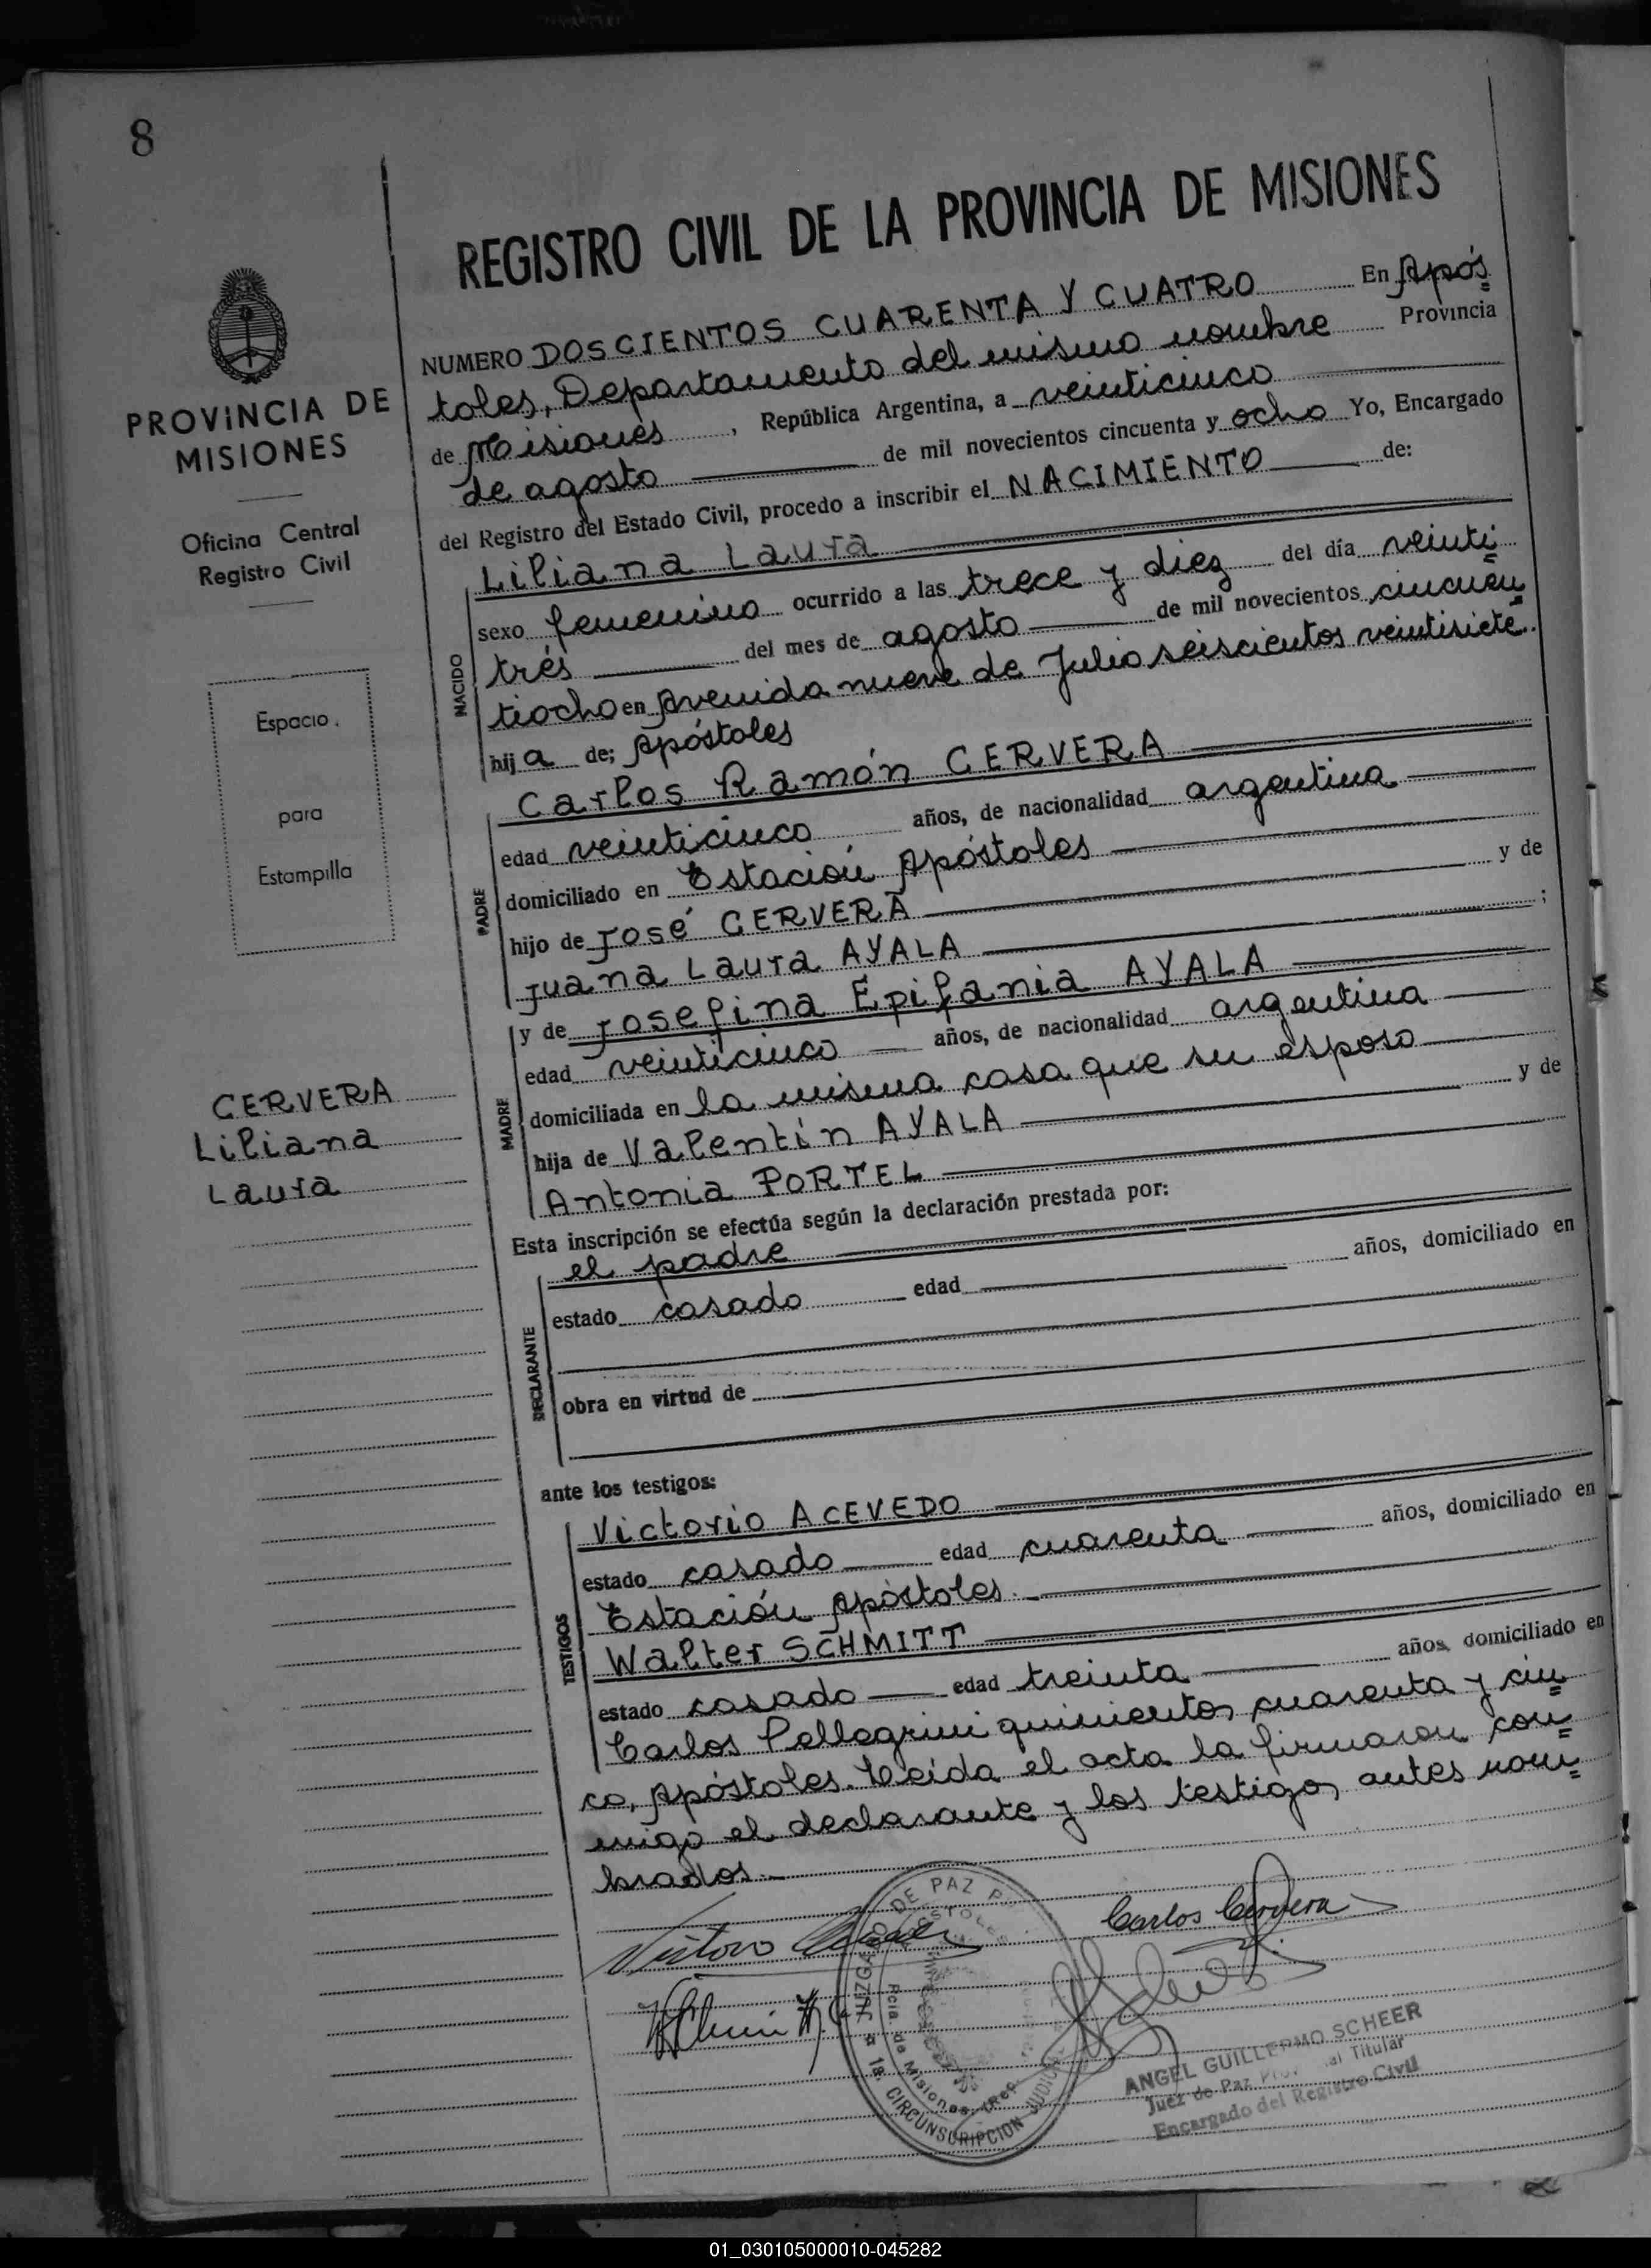 8
REGISTRO CIVIL DE LA PROVINCIA DE MISIONES
NUMERO DOSCIENTOS CUARENTA Y CUATRO En Após=
toles, Departamento del mismo nombre Provincia
de Misiones, República Argentina, a veinticinco
de agosto de mil novecientos cincuenta y ocho Yo, Encargado
del Registro del Estado Civil, procedo a inscribir el NACIMIENTO de:
PROVINCIA DE
MISIONES
Oficina Central
Registro Civil
Espacio
para
Estampilla
CERVERA
Liliana
Laura
NACIDO
Liliana Laura
sexo femenino ocurrido a las trece y diez del día veinti=
trés del mes de agosto de mil novecientos cincuen=
tiocho en Avenida nueve de Julio seiscientos veintisiete.
hija de; Apóstoles
PADRE
Carlos Ramón CERVERA
edad veinticinco años, de nacionalidad argentina
domiciliado en Estación Apóstoles
hijo de José CERVERA y de
Juana Laura AYALA ;
MADRE
y de Josefina Epifania AYALA
edad veinticinco años, de nacionalidad argentina
domiciliada en la misma casa que su esposo
hija de Valentín AYALA y de
Antonia PORTEL
Esta inscripción se efectúa según la declaración prestada por:
DECLARANTE
el padre
estado casado edad años, domiciliado en
obra en virtud de
ante los testigos:
TESTIGOS
Victorio ACEVEDO
estado casado edad cuarenta años, domiciliado en
Estación Apóstoles.
Walter SCHMITT
estado casado edad treinta años, domiciliado en
Carlos Pellegrini quinientos cuarenta y cin=
co, Apóstoles. Leída el acta la firmaron con=
migo el declarante y los testigos antes nom=
brados.
Carlos Cervera
DE PAZ
JUZGA
Pcia. de Misiones (Rep.
1ª CIRCUNSCRIPCION JUDICI
ANGEL GUILLERMO SCHEER
Juez de Paz Titular
Encargado del Registro Civil
01_030105000010-045282